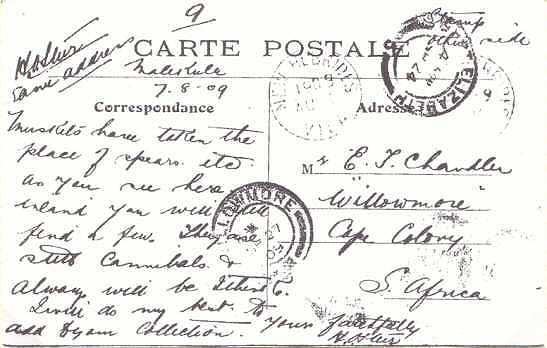 9
Stamp
other side
same address
CARTE POSTALE
Malekula
7.8-09
Correspondance
Adresse
NEW HEBRIDES
ELIZABETH
Muskets have taken the
place of spears etc
as you see here
inland you will still
find a few. They are
still Cannibals &
always will be I think
I will do my best to
add to your Collection. Yours faithfully
Mr E. T. Chandler
"Willowmore"
Cape Colony
S. Africa
LOWMORE